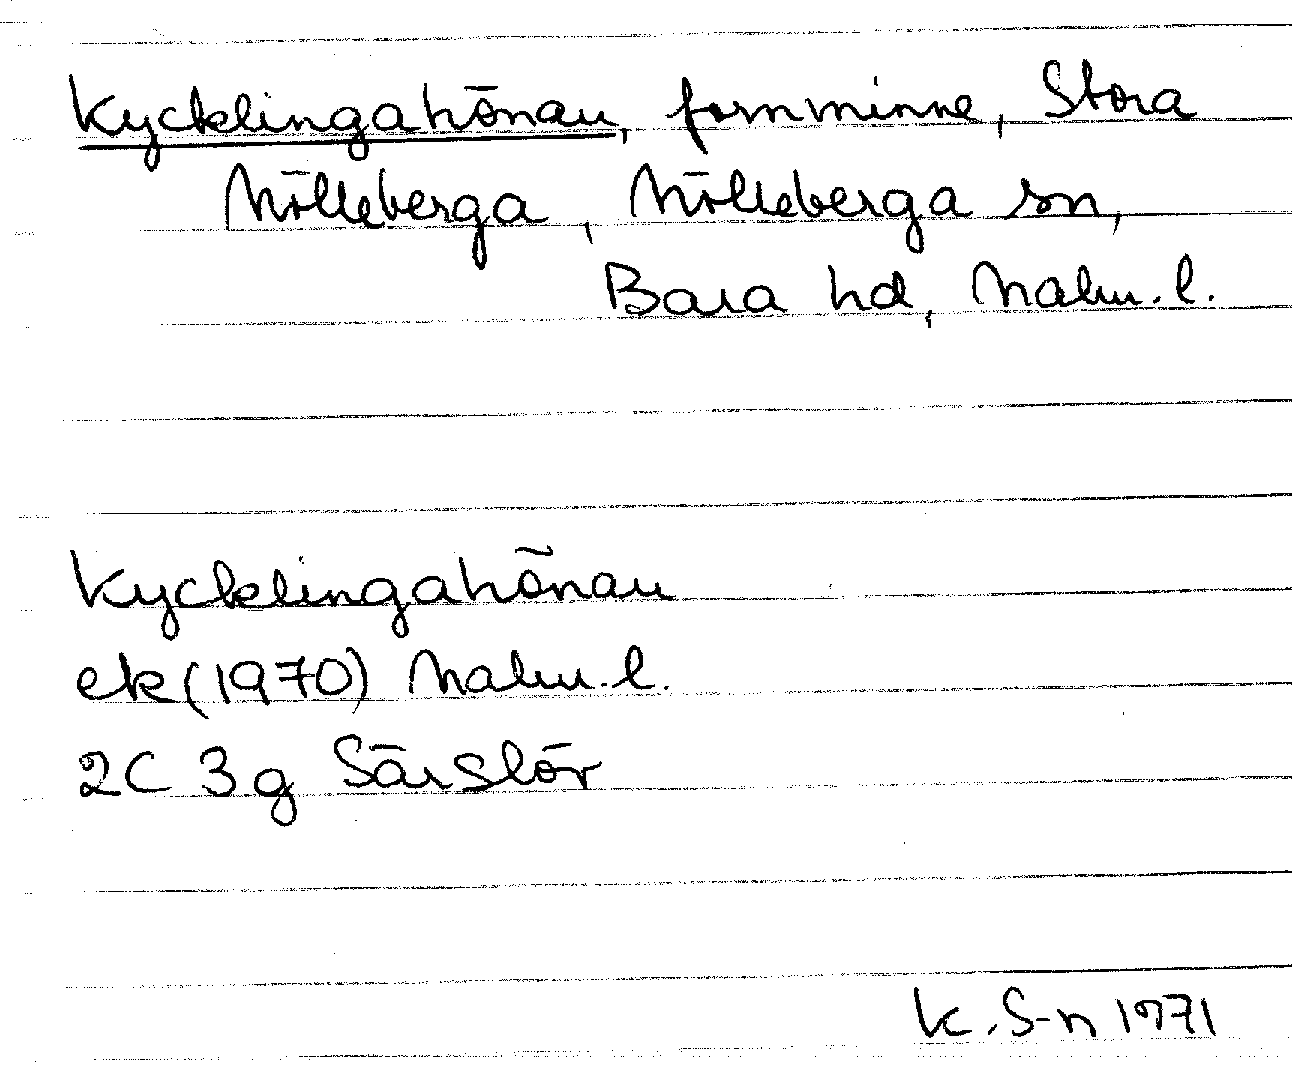 Kycklingahönan, fornminne, Stora
Mölleberga, Mölleberga sn,
Bara hd, Malm. l.
Kycklingahönan
ek (1970) Malm. l.
2C 3g Särslöv
K. S-n 1971